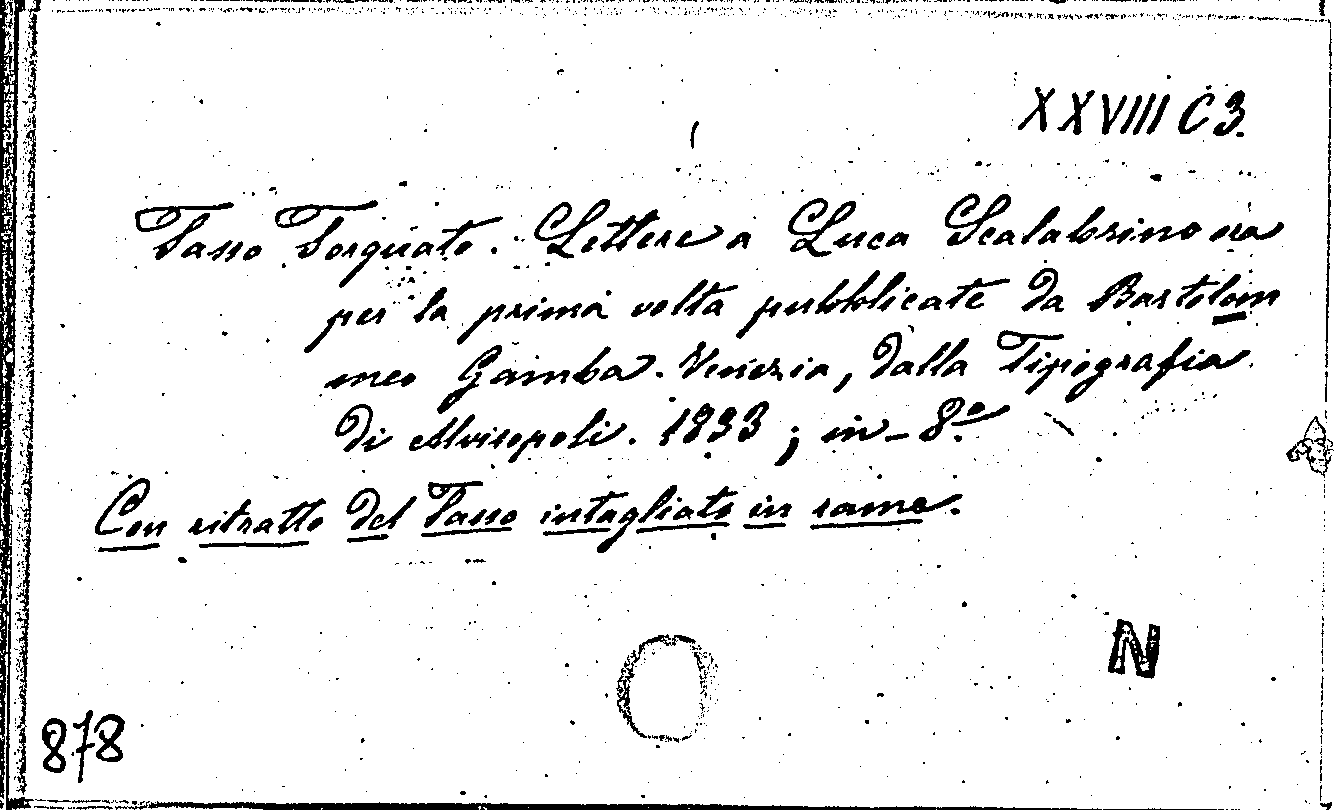 XXVIII C 3.
Tasso Torquato. Lettere a Luca Scalabrino ora
per la prima volta pubblicate da Bartolom
meo Gamba. Venezia, dalla Tipografia
di Alvisopoli. 1833 ; in-8.º
Con ritratto del Tasso intagliato in rame.
N
878